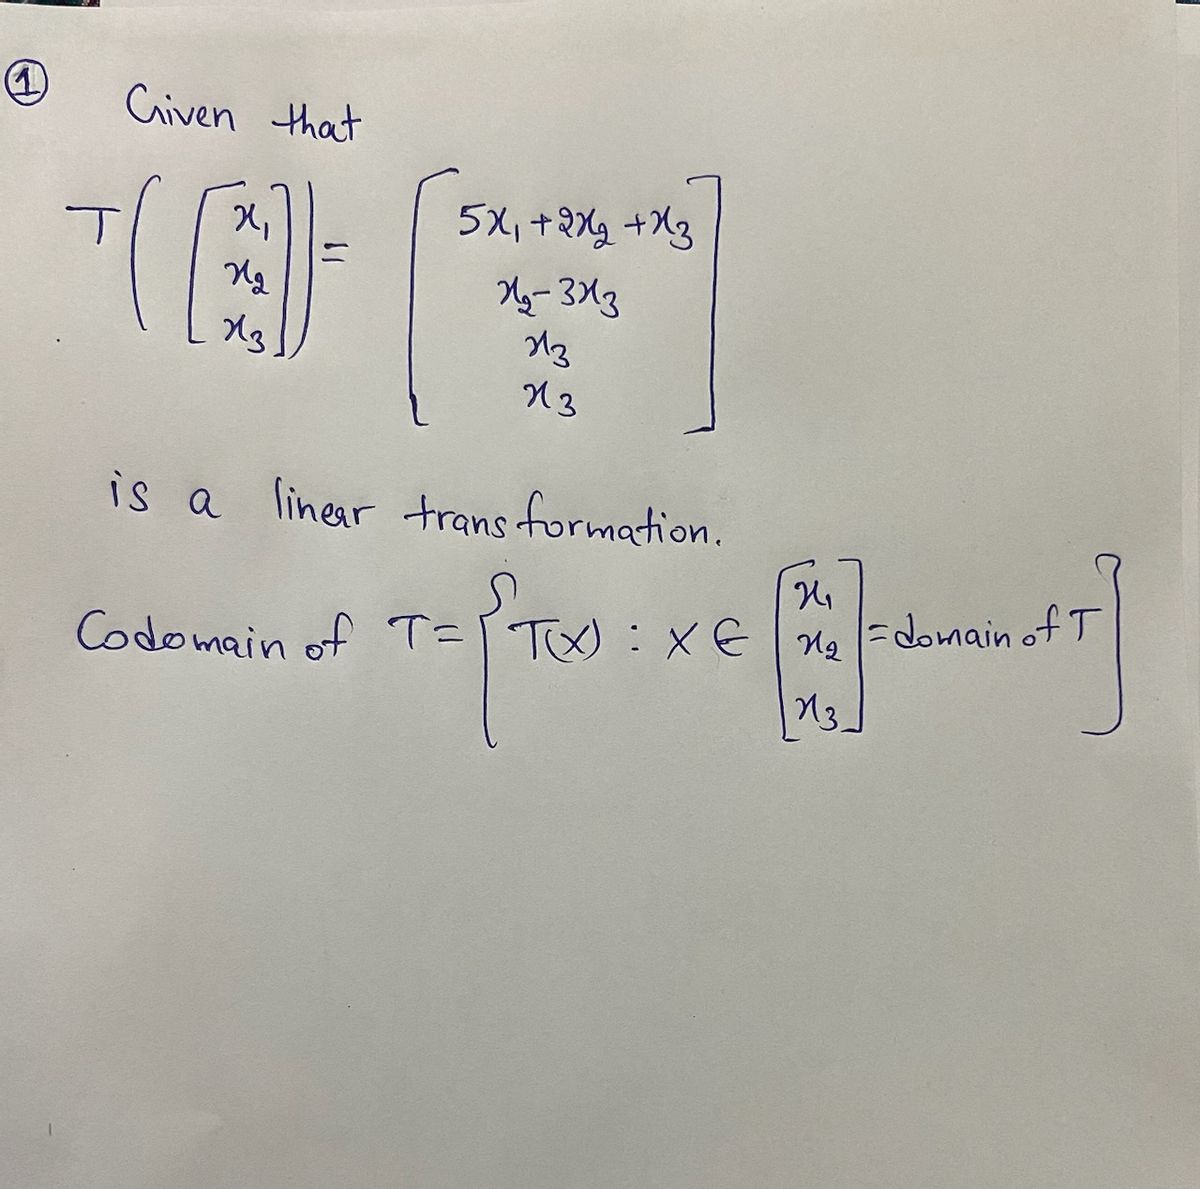 ① Given that
T([x₁ x₂ x₃]) = [5x₁ + 2x₂ + x₃
x₂ - 3x₃
x₃
x₃]
is a linear transformation.
Codomain of T = {T(x) : x ∈ [x₁ x₂ x₃] = domain of T}